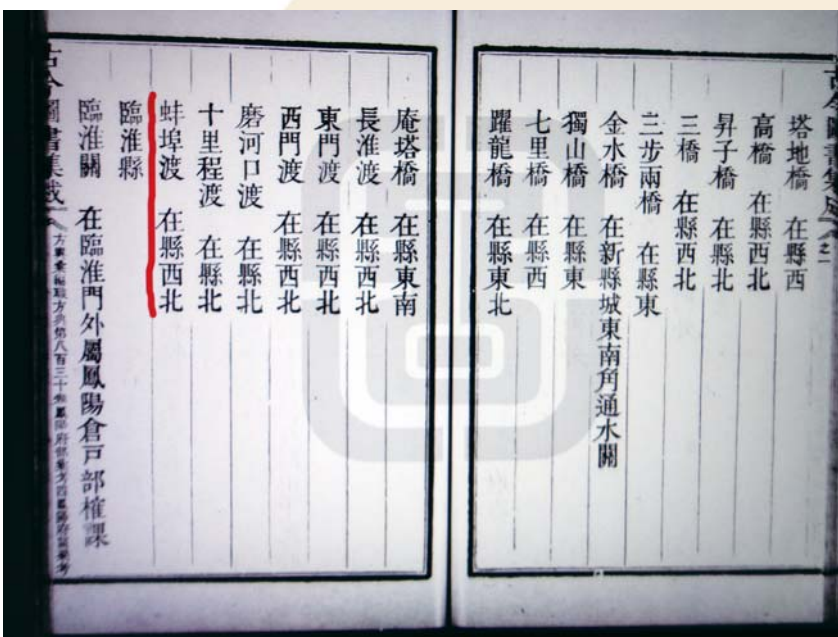 塔地橋 在縣西
高橋 在縣西北
昇子橋 在縣北
三橋 在縣西北
三步兩橋 在縣東
金水橋 在新縣城東南角通水關
獨山橋 在縣東
七里橋 在縣西
躍龍橋 在縣東北
庵塔橋 在縣東南
長淮渡 在縣西北
東門渡 在縣西北
西門渡 在縣西北
磨河口渡 在縣北
十里程渡 在縣北
蚌埠渡 在縣西北
臨淮縣
臨淮關 在臨淮門外屬鳳陽倉戶部榷課
古今圖書集成